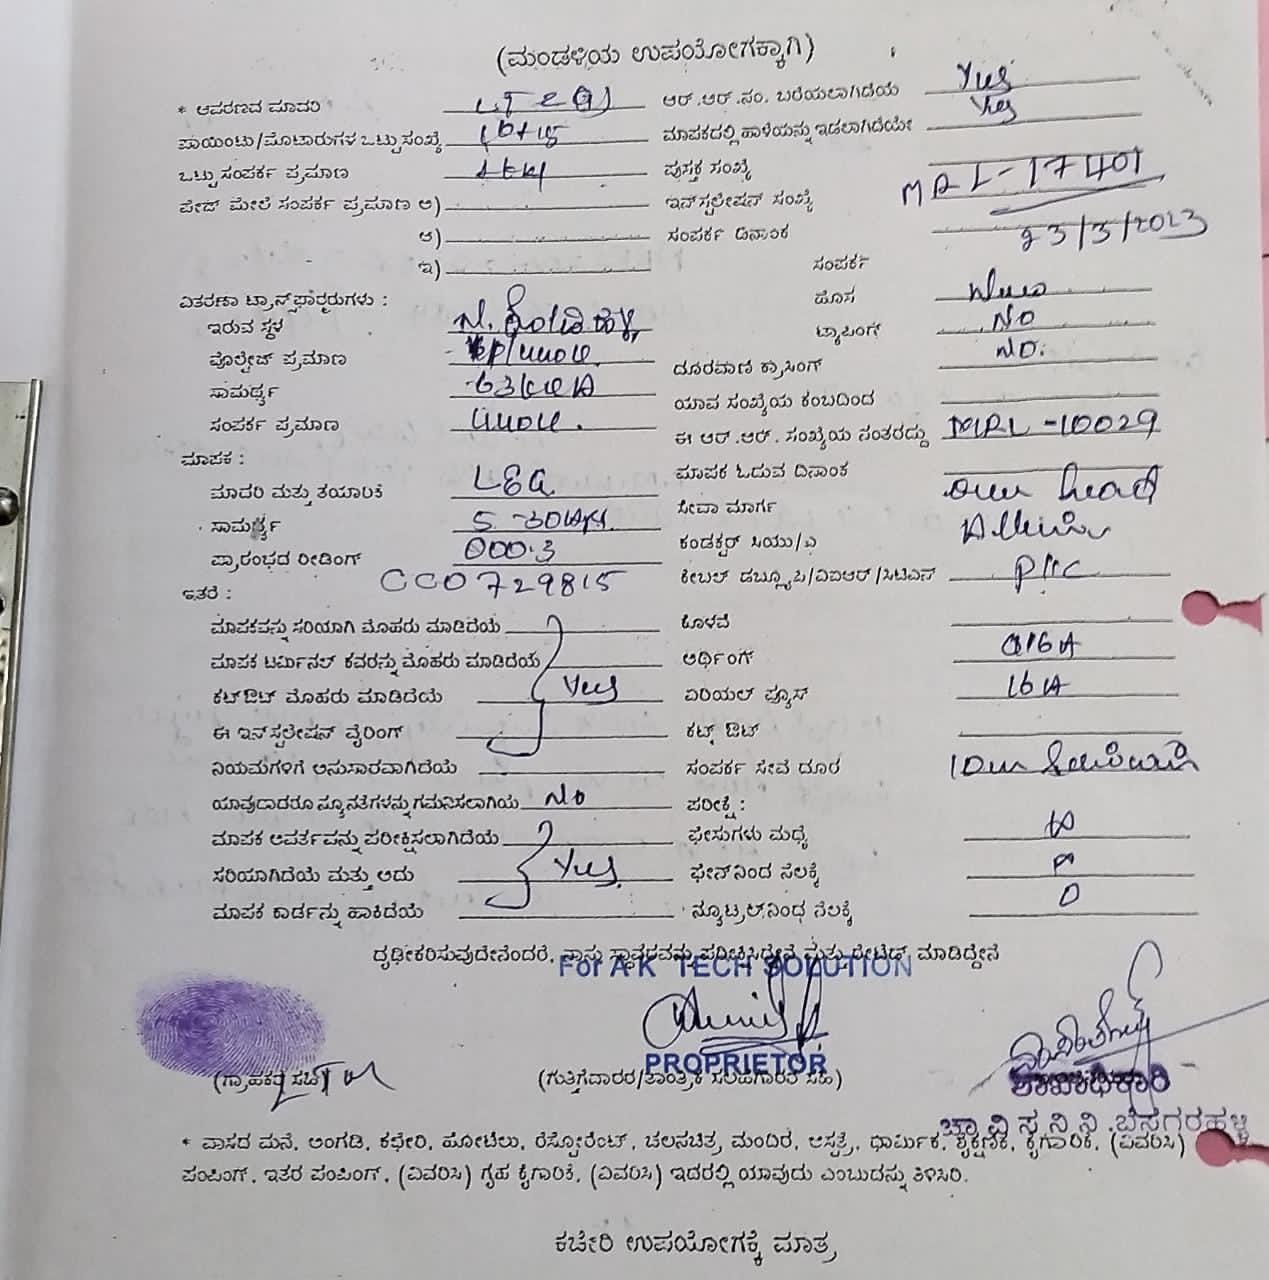 (ಮಂಡಳಿಯ ಉಪಯೋಗಕ್ಕಾಗಿ)
* ಆವರಣದ ಮಾದರಿ ಆರ್.ಆರ್.ನಂ. ಬರೆಯಲಾಗಿದೆಯೆ Yes
ಪಾಯಿಂಟು/ಮೋಟಾರುಗಳ ಒಟ್ಟು ಸಂಖ್ಯೆ ಮಾಪಕದಲ್ಲಿ ಹಾಳೆಯನ್ನು ಇಡಲಾಗಿದೆಯೇ Yes
ಒಟ್ಟು ಸಂಪರ್ಕ ಪ್ರಮಾಣ ಪುಸ್ತಕ ಸಂಖ್ಯೆ
ಪೇಜ್ ಮೇಲೆ ಸಂಪರ್ಕ ಪ್ರಮಾಣ ಅ) ಇನ್‌ಸ್ಟಲೇಷನ್ ಸಂಖ್ಯೆ MRL-17401
ಆ) ಸಂಪರ್ಕ ದಿನಾಂಕ 23/3/2023
ಇ) ಸಂಪರ್ಕ
ವಿತರಣಾ ಟ್ರಾನ್ಸ್‌ಫಾರ್ಮರುಗಳು : ಹೊಸ
ಇರುವ ಸ್ಥಳ ಟ್ಯಾಪಿಂಗ್ NO
ವೊಲ್ಟೇಜ್ ಪ್ರಮಾಣ ದೂರವಾಣಿ ಕ್ರಾಸಿಂಗ್ NO.
ಸಾಮರ್ಥ್ಯ ಯಾವ ಸಂಖ್ಯೆಯ ಕಂಬದಿಂದ
ಸಂಪರ್ಕ ಪ್ರಮಾಣ ಈ ಆರ್.ಆರ್. ಸಂಖ್ಯೆಯ ನಂತರದ್ದು MRL-10029
ಮಾಪಕ : ಮಾಪಕ ಓದುವ ದಿನಾಂಕ
ಮಾದರಿ ಮತ್ತು ತಯಾರಿಕೆ L&G ಸೇವಾ ಮಾರ್ಗ over head
ಸಾಮರ್ಥ್ಯ 5-30 ಕಂಡಕ್ಟರ್ ಸಿಯು/ಎ
ಪ್ರಾರಂಭದ ರೀಡಿಂಗ್ 000.3 ಕೇಬಲ್ ಡಬ್ಲ್ಯೂಪಿ/ವಿಐಆರ್/ಸಿಟಿಎಸ್ PVC
ಇತರೆ : CC0729815
ಮಾಪಕವನ್ನು ಸರಿಯಾಗಿ ಮೊಹರು ಮಾಡಿದೆಯೆ ಕೊಳವೆ
ಮಾಪಕ ಟರ್ಮಿನಲ್ ಕವರನ್ನು ಮೊಹರು ಮಾಡಿದೆಯ ಅರ್ಥಿಂಗ್
ಕಟ್‌ಔಟ್ ಮೊಹರು ಮಾಡಿದೆಯೆ Yes ಏರಿಯಲ್ ಪ್ಯೂಸ್ 16 A
ಈ ಇನ್‌ಸ್ಟಲೇಷನ್ ವೈರಿಂಗ್ ಕಟ್ ಔಟ್
ನಿಯಮಗಳಿಗೆ ಅನುಸಾರವಾಗಿದೆಯೆ ಸಂಪರ್ಕ ಸೇವೆ ದೂರ
ಯಾವುದಾದರೂ ನ್ಯೂನತೆಗಳನ್ನು ಗಮನಿಸಲಾಗಿಯೆ No ಪರೀಕ್ಷೆ :
ಮಾಪಕ ಆವರ್ತವನ್ನು ಪರೀಕ್ಷಿಸಲಾಗಿದೆಯೆ ಫೇಸುಗಳು ಮಧ್ಯೆ
ಸರಿಯಾಗಿದೆಯೆ ಮತ್ತು ಅದು Yes ಫೇಸ್‌ನಿಂದ ನೆಲಕ್ಕೆ
ಮಾಪಕ ಕಾರ್ಡನ್ನು ಹಾಕಿದೆಯೆ ನ್ಯೂಟ್ರಲ್‌ನಿಂಧ ನೆಲಕ್ಕೆ 0
ದೃಢೀಕರಿಸುವುದೇನೆಂದರೆ, ನಾನು ಸ್ಥಾವರವನ್ನು ಪರೀಕ್ಷಿಸಿದ್ದೇನೆ ಮತ್ತು ರೇಟಿಡ್ ಮಾಡಿದ್ದೇನೆ
For A K TECH SOLUTION
PROPRIETOR
(ಗ್ರಾಹಕರ ಸಹಿ) LTM (ಗುತ್ತಿಗೆದಾರರ/ತಾಂತ್ರಿಕ ಸಲಹಗಾರರ ಸಹಿ) ಶಾಖಾಧಿಕಾರಿ
ಚಾ.ವಿ.ಸ.ನಿ.ನಿ. ಬೆಸಗರಹಳ್ಳಿ
* ವಾಸದ ಮನೆ, ಅಂಗಡಿ, ಕಛೇರಿ, ಹೋಟೆಲು, ರೆಸ್ಟೋರೆಂಟ್, ಚಲನಚಿತ್ರ ಮಂದಿರ, ಆಸ್ಪತ್ರೆ, ಧಾರ್ಮಿಕ, ಶೈಕ್ಷಣಿಕ, ಕೈಗಾರಿಕೆ, (ವಿವರಿಸಿ)
ಪಂಪಿಂಗ್, ಇತರ ಪಂಪಿಂಗ್, (ವಿವರಿಸಿ) ಗೃಹ ಕೈಗಾರಿಕೆ, (ವಿವರಿಸಿ) ಇದರಲ್ಲಿ ಯಾವುದು ಎಂಬುದನ್ನು ತಿಳಿಸಿರಿ.
ಕಚೇರಿ ಉಪಯೋಗಕ್ಕೆ ಮಾತ್ರ